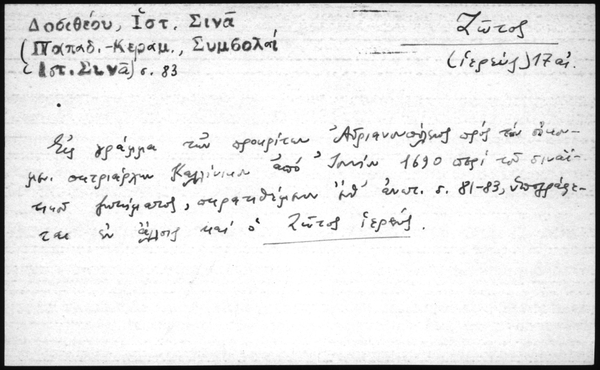 Δοσιθέου, Ἱστ. Σινᾶ
(Παπαδ.-Κεραμ., Συμβολαί
Ἱστ. Σινᾶ) σ. 83
Ζῶτος
(ἱερεύς) 17 αἰ.
Εἰς γράμμα τῶν προκρίτων Ἀδριανουπόλεως πρός τόν οἰκου-
μεν. πατριάρχην Καλλίνικον ἀπό Ἰουν. 1690 περί τοῦ σιναϊ-
τικοῦ ζητήματος, παρατιθέμενον ἀνωτ. σ. 81-83, ὑπογράφε-
ται ἐν ἄλλοις καί ὁ Ζῶτος ἱερεύς.